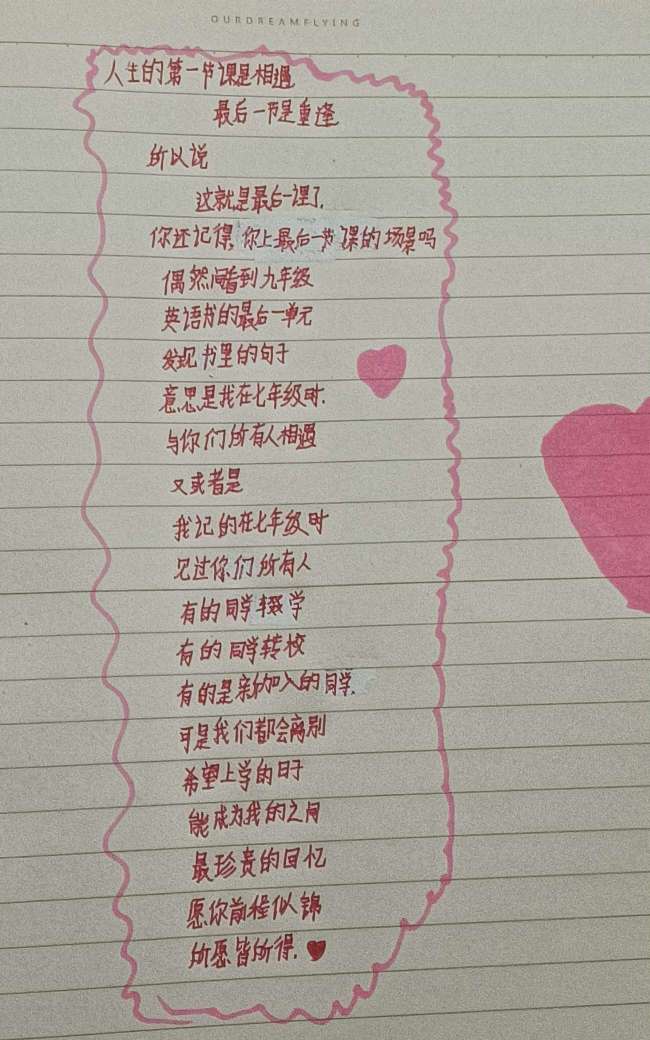 OURDREAMFLYING
人生的第一节课是相遇
最后一节是重逢
所以说
这就是最后一课了.
你还记得你上最后一节课的场景吗
偶然间看到九年级
英语书的最后一单元
发现书里的句子
意思是我在七年级时.
与你们所有人相遇
又或者是
我记的在七年级时
见过你们所有人
有的同学辍学
有的同学转校
有的是新加入的同学.
可是我们都会离别
希望上学的日子
能成为我的之间
最珍贵的回忆
愿你前程似锦
所愿皆所得.